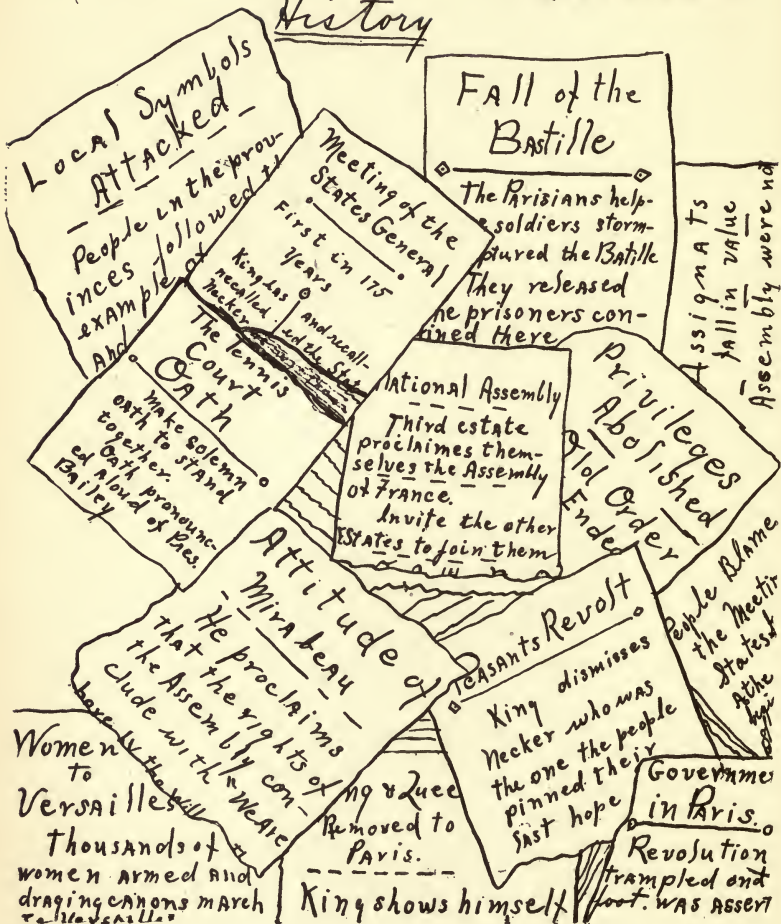 History
Local Symbols
Attacked
People in the prov-
inces followed th
example of
And
Meeting of the
States General
First in 175
Years
King has
recalled
Necker
and recall-
ed the Stat
Fall of the
Bastille
The Parisians help-
soldiers storm-
ptured the Batille
They released
he prisoners con-
ined there
Assignats
fall in value
Assembly were no
The Tennis
Court
Oath
Make solemn
oath to stand
together.
Oath pronounc-
ed aloud of Pres.
Bailey
National Assembly
Third estate
proclaimes them-
selves the Assembly
of France.
Invite the other
Estates to join them
Privileges
Abolished
Old Order
Ended
Attitude of
Mirabeau
He proclaims
that the rights of
the Assembly con-
clude with "We are
here by the will
Peasants Revolt
King dismisses
Necker who was
the one the people
pinned their
last hope
People Blame
the Meetin
States
Women
to
Versailles
Thousands of
women armed and
draging canons march
to Versailles
ng & Quee
Removed to
Paris.
King shows himself
Governme
in Paris.
Revolution
trampled ond
foot. was assert